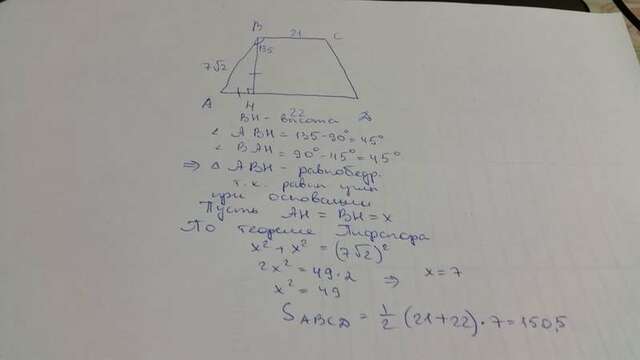 B 21 C
135
7√2
A H 22 D
BH - высота
∠ ABH = 135-90° = 45°
∠ BAH = 90° - 45° = 45°
⇒ △ ABH - равнобедр.
т.к. равны углы
при основании
Пусть AH = BH = x
По теореме Пифагора
x² + x² = (7√2)²
2x² = 49·2 ⇒ x = 7
x² = 49
S ABCD = 1/2 (21+22)·7 = 150,5